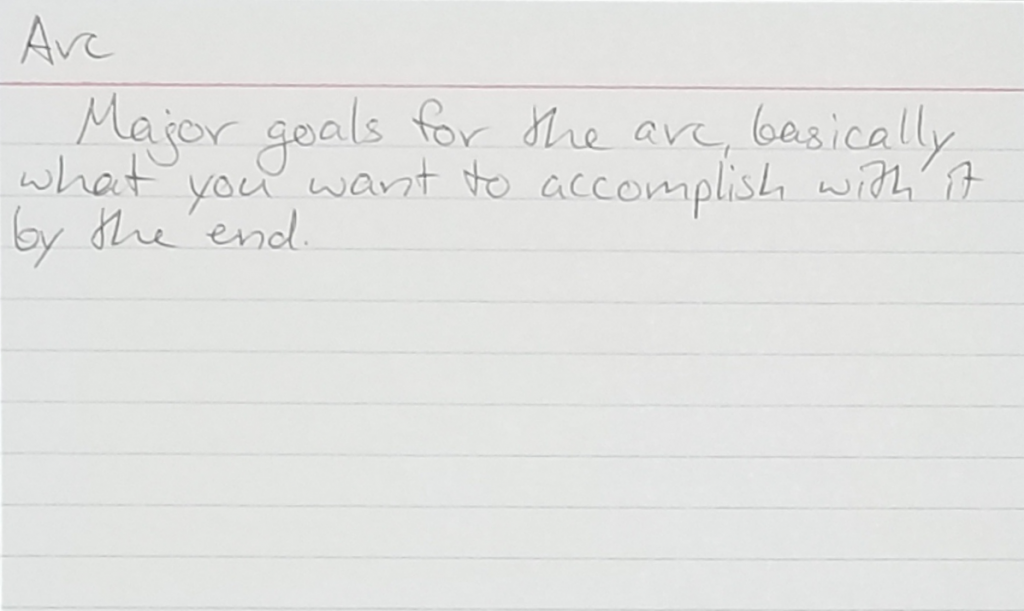 Arc
Major goals for the arc, basically
what you want to accomplish with it
by the end.